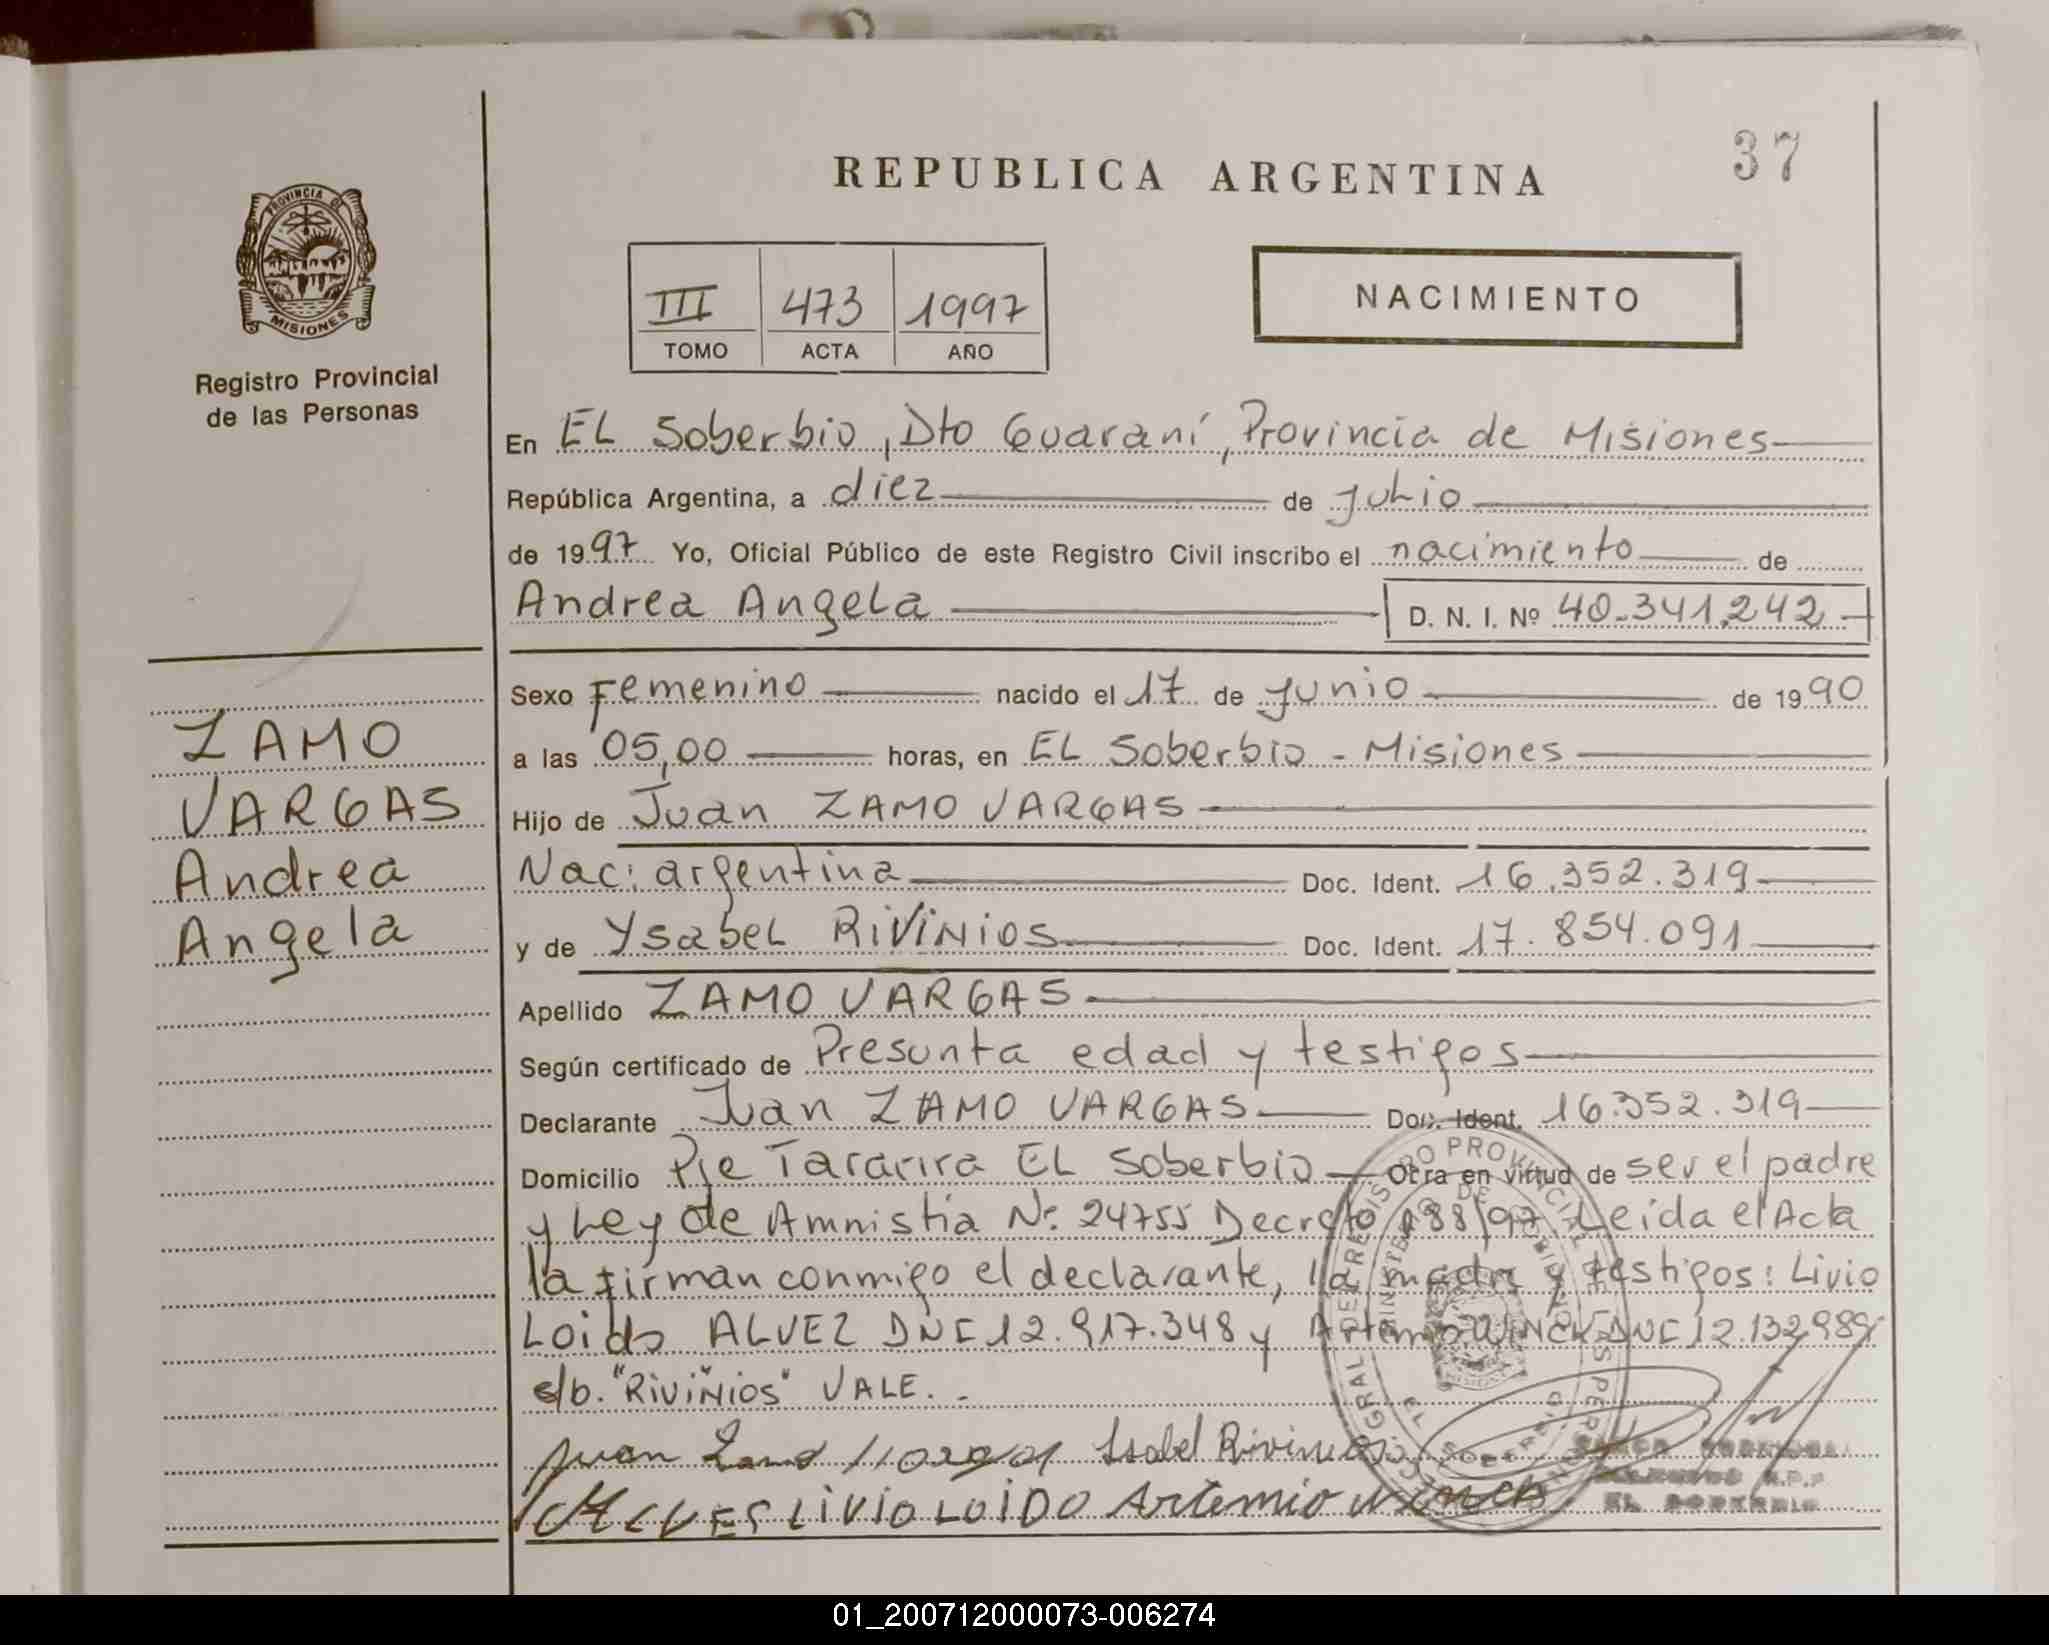 37
REPUBLICA ARGENTINA
PROVINCIA DE
MISIONES
Registro Provincial
de las Personas
III 473 1997
TOMO ACTA AÑO
NACIMIENTO
En EL Soberbio, Dto Guaraní, Provincia de Misiones
República Argentina, a diez de Julio
de 1997 Yo, Oficial Público de este Registro Civil inscribo el nacimiento de
Andrea Angela D. N. I. Nº 40.341.242
ZAMO
VARGAS
Andrea
Angela
Sexo Femenino nacido el 17 de Junio de 1990
a las 05,00 horas, en EL Soberbio - Misiones
Hijo de Juan ZAMO VARGAS
Nac: argentina Doc. Ident. 16.352.319
y de Ysabel RiViNios Doc. Ident. 17.854.091
Apellido ZAMO VARGAS
Según certificado de Presunta edad y testigos
Declarante Juan ZAMO VARGAS Doc. Ident. 16.352.319
Domicilio Pje Tararira EL Soberbio Obra en virtud de ser el padre
y Ley de Amnistía Nº 24755 Decreto 188/97 Leída el Acta
la firman conmigo el declarante, la madre y testigos: Livio
Loido ALVEZ DNI 12.917.348 y Artemio WINCK DNI 12.132.989
s/b. "RiViÑios" VALE..
Juan Zamo Isabel Rivinios
ALVES LIVIO LOIDO Artemio Winck
EL SOBERBIO
01_200712000073-006274